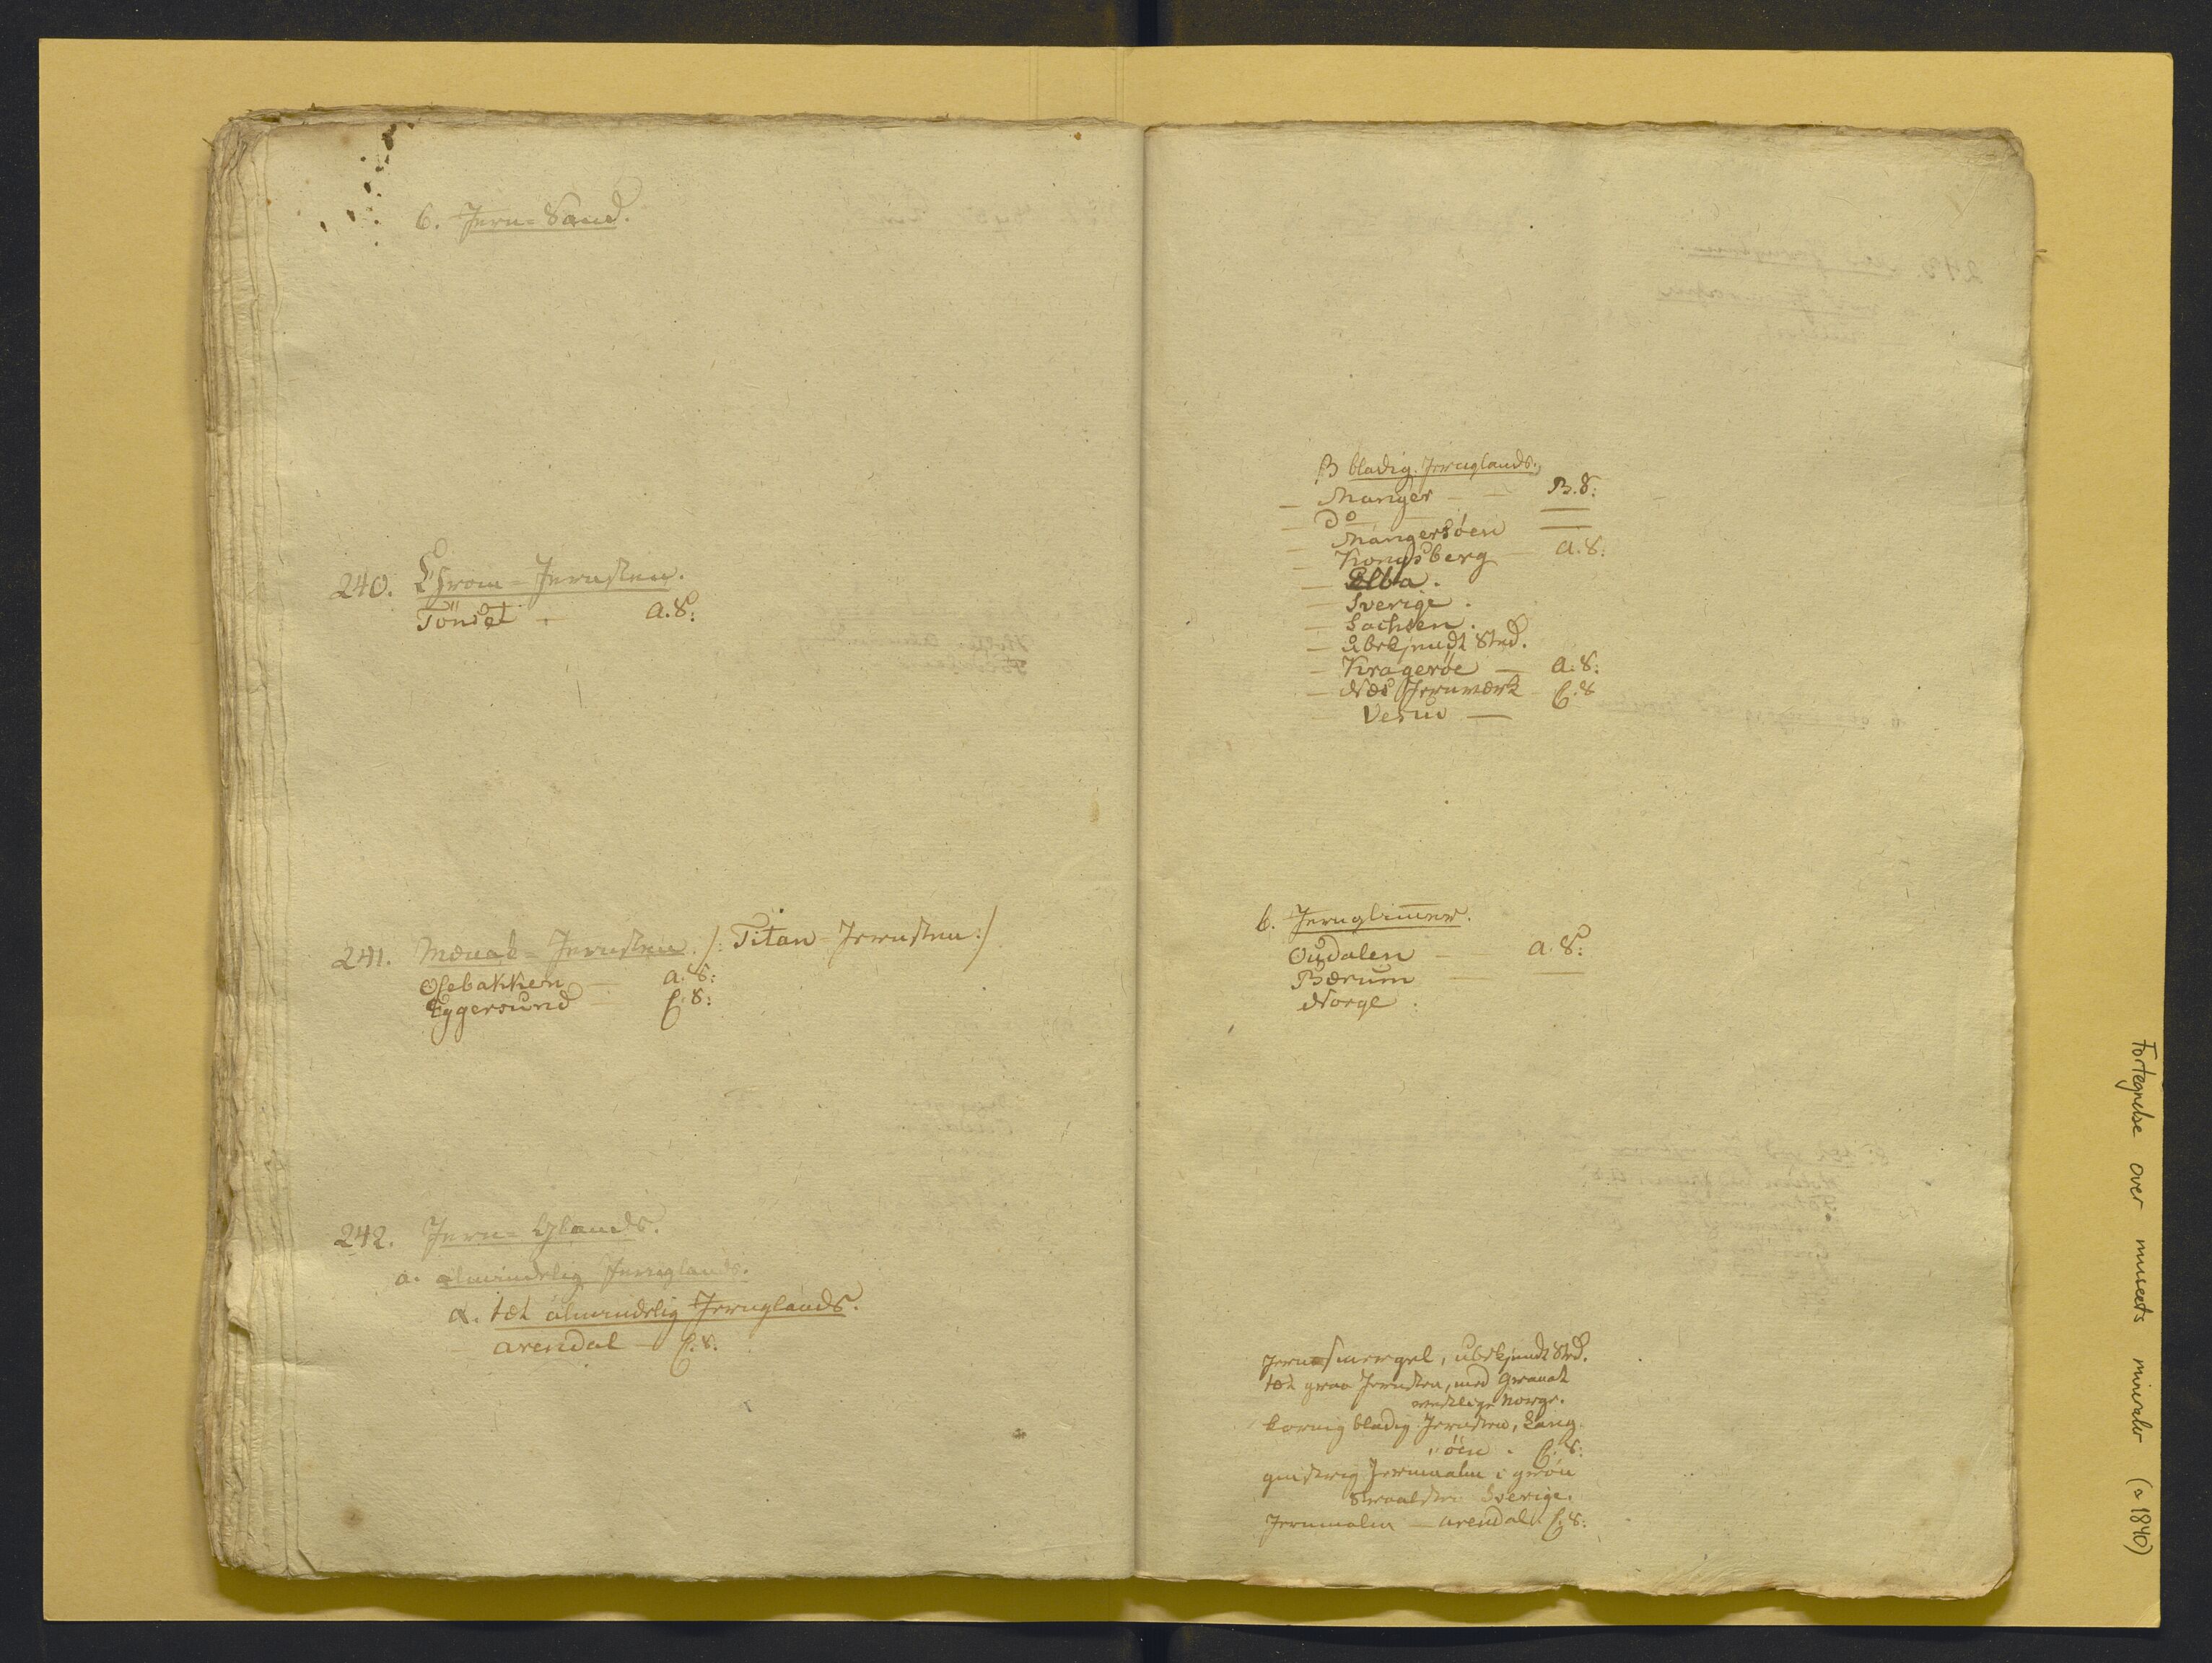 6. Jern=Sand.
240. Chrom=Jernsten.
Töndet — A.S:
241. Mænak=Jernsten. /: Titan-Jernsten :/
Osebakken — A.S:
Eggersund — C.S:
242. Jern=Glands.
a. almindelig Jernglands.
α. tæt almindelig Jernglands.
— Arendal — C.S.
β bladig. Jernglands.
— Manger — — B.S:
— Do — —
— Mangersöen —
— Kongsberg — A.S:
— Elba.
— Sverige.
— Sachsen.
— Ubekjendt Sted.
— Kragerøe — A.S:
— Næs Jernværk C.S
— Vesuv —
b. Jernglimmer.
Oudalen — — A.S:
Bærum — —
Norge.
Jern=Smergel, ubekjendt Sted.
tæt graa Jernsten, med Granat
vestlige Norge.
kornig bladig Jernsten, Lang
"öen. C.S:
Jernmalm i grøn
Straalsten Sverige.
Jernmalm — Arendal. C.S:
Fortegnelse over museets mineraler (ca 1840)